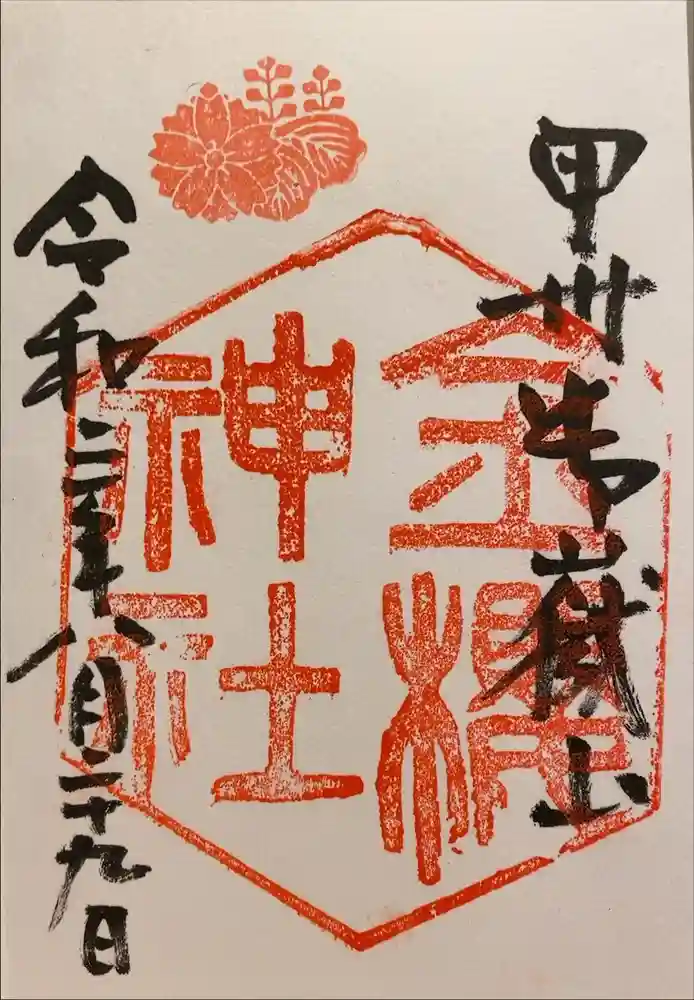 甲州御嶽山
金櫻
神社
令和二年八月二十九日